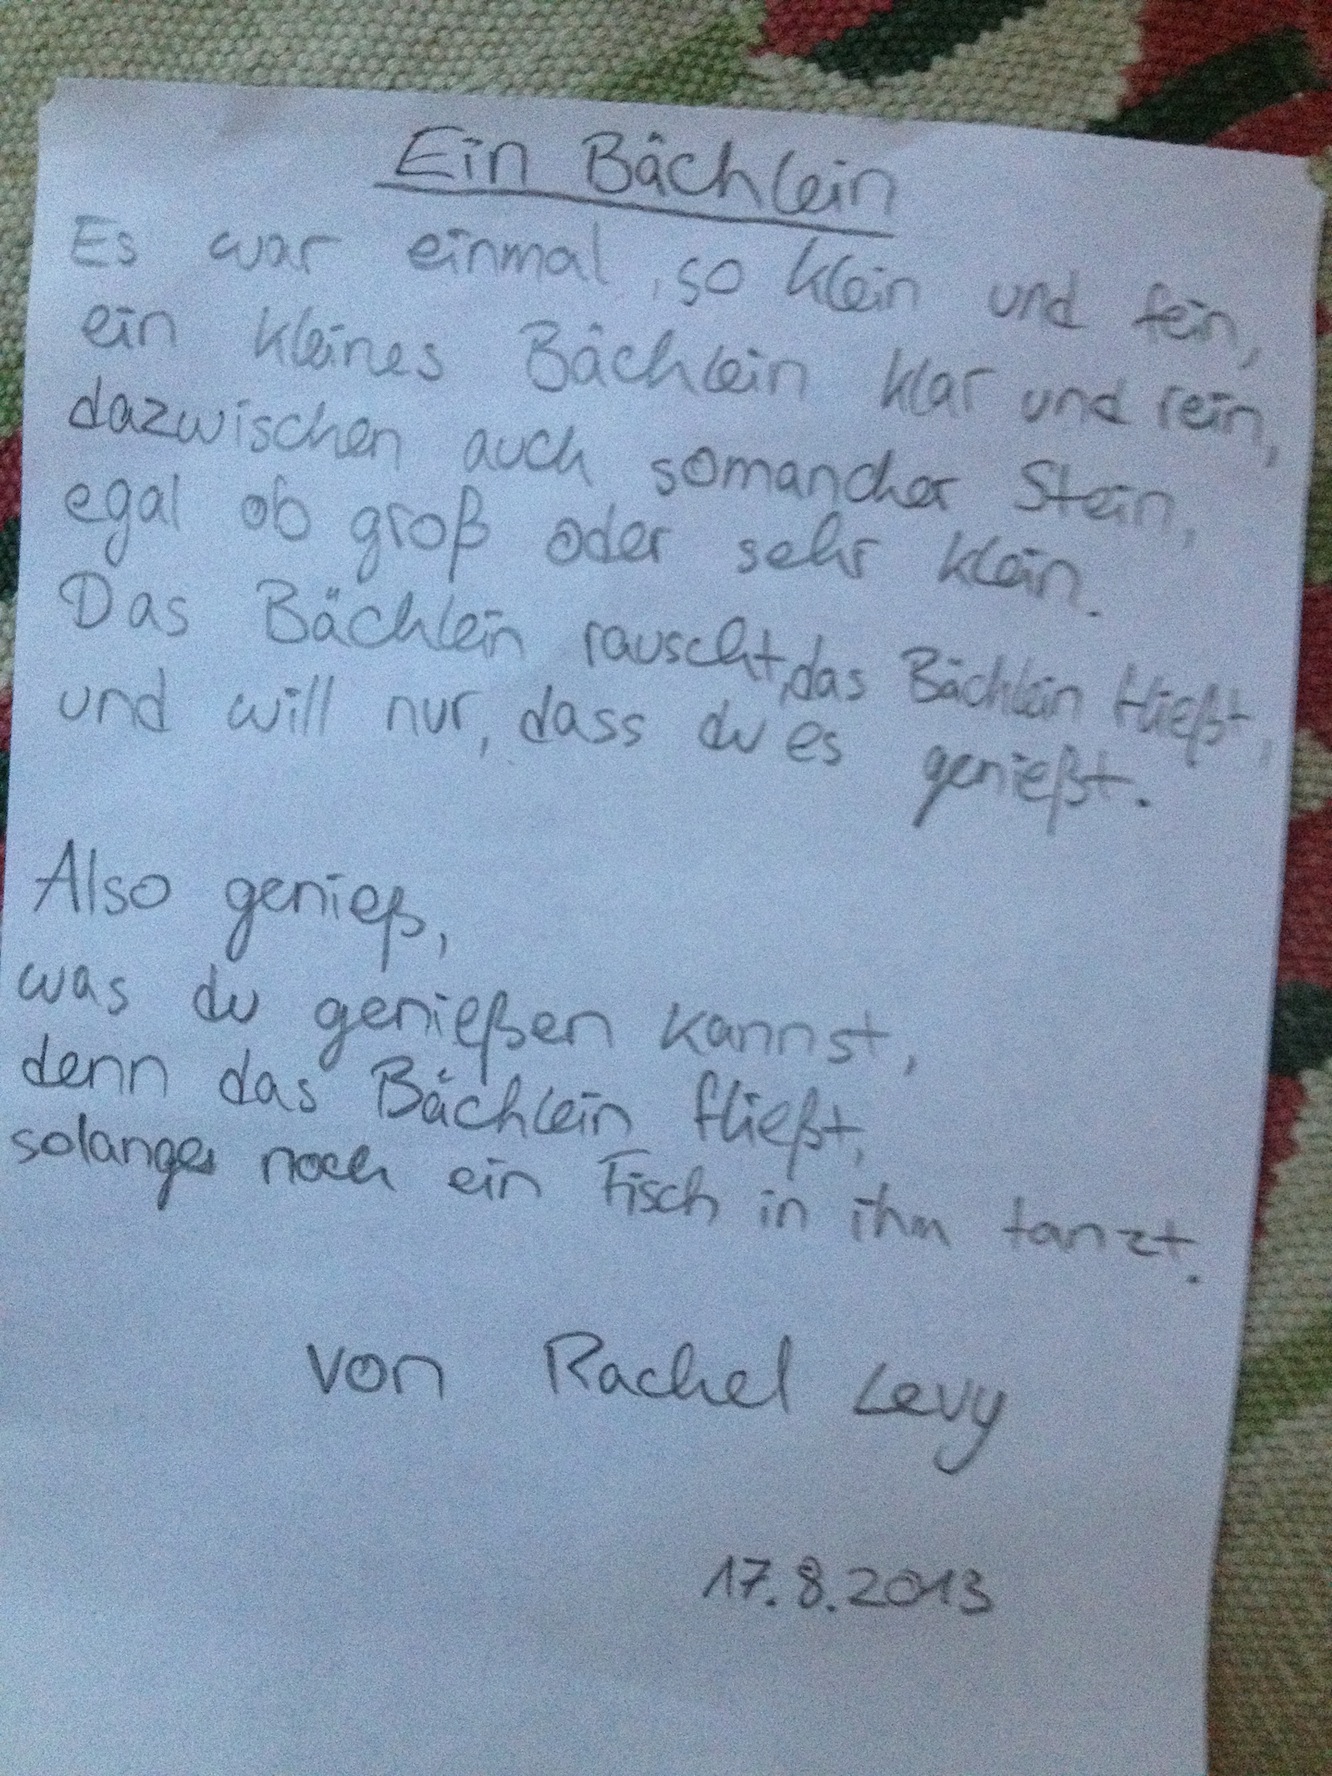 Ein Bächlein
Es war einmal, so klein und fein,
ein kleines Bächlein klar und rein,
dazwischen auch somancher Stein,
egal ob groß oder sehr klein.
Das Bächlein rauscht, das Bächlein fließt,
und will nur, dass du es genießt.
Also genieß,
was du genießen kannst,
denn das Bächlein fließt,
solange noch ein Fisch in ihm tanzt.
von Rachel Levy
17.8.2013